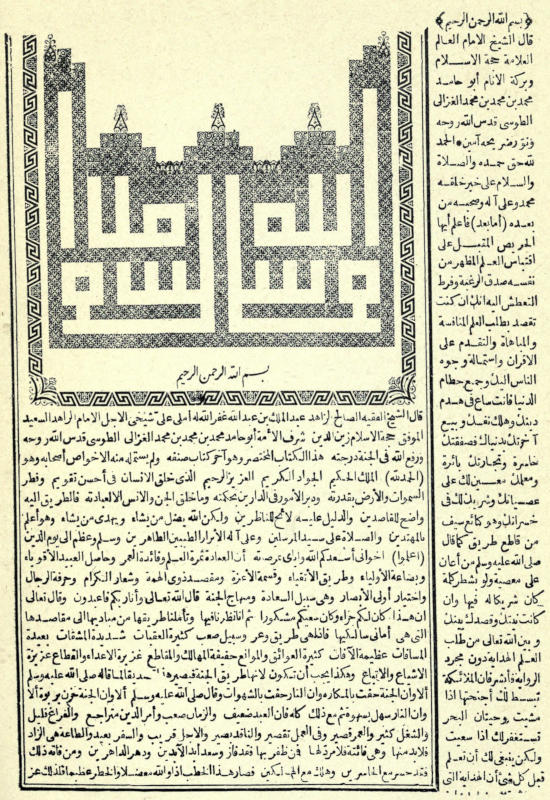 ﴿بسم الله الرحمن الرحيم﴾
قال الشيخ الامام العالم
العلامة حجة الاسلام
وبركة الانام أبو حامد
محمد بن محمد بن محمد الغزالى
الطوسى قدس الله روحه
ونور ضريحه آمين * الحمد
لله حق حمده والصلاة
والسلام على خير خلقه
محمد وعلى آله وصحبه من
بعده (أما بعد) فاعلم أيها
الحريص المقبل على
اقتباس العلم المظهر من
نفسه صدق الرغبة وفرط
التعطش اليه انك ان كنت
تقصد بطلب العلم المنافسة
والمباهاة والتقدم على
الاقران واستمالة وجوه
الناس اليك وجمع حطام
الدنيا فانت ساع فى هدم
دينك وهلاك نفسك وبيع
آخرتك بدنياك فصفقتك
خاسرة وتجارتك بائرة
ومعلمك معين لك على
عصيانك وشريك لك فى
خسرانك وهو كبائع سيف
من قاطع طريق كما قال
صلى الله عليه وسلم من أعان
على معصية ولو بشطر كلمة
كان شريكا له فيها وان
كانت نيتك وقصدك بينك
و بين الله تعالى من طلب
العلم الهداية دون مجرد
الرواية فأبشر فان الملائكة
تبسط لك أجنحتها اذا
مشيت وحيتان البحر
تستغفر لك اذا سعيت
ولكن ينبغى لك أن تعلم
قبل كل شئ أن الهداية التى
بسم الله الرحمن الرحيم
قال الشيخ الفقيه الصالح الزاهد عبد الملك بن عبد الله غفر الله له أملى على شيخى الاجل الامام الزاهد السعيد
الموفق حجة الاسلام زين الدين شرف الأئمة أبو حامد محمد بن محمد بن محمد الغزالى الطوسى قدس الله روحه
ورفع الله فى الجنة درجته هذا الكتاب المختصر وهو آخر كتاب صنفه ولم يستمله منه الا خواص أصحابه وهو
(الحمد لله) الملك الحكيم الجواد الكريم العزيز الرحيم الذى خلق الانسان فى أحسن تقويم وفطر
السموات والأرض بقدرته ودبر الأمور فى الدارين بحكمته وما خلق الجن والانس الا لعبادته فالطريق اليه
واضح للقاصدين والدليل عليه لائح للناظرين ولكن الله يضل من يشاء ويهدى من يشاء وهو أعلم
بالمهتدين والصلاة على سيد المرسلين وعلى آله الأبرار الطيبين الطاهرين وسلم وعظم الى يوم الدين
(اعلموا) اخوانى أسعدكم الله واياى بمرضاته أن العبادة ثمرة العلم وفائدة العمر وحاصل العبيد الأقوياء
وبضاعة الأولياء وطريق الأتقياء وقسمة الأعزة ومقصد ذوى الهمة وشعار الكرام وحرفة الرجال
واختيار أولى الأبصار وهى سبيل السعادة ومنهاج الجنة قال الله تعالى وأنا ربكم فاعبدون وقال تعالى
ان هذا كان لكم جزاء وكان سعيكم مشكورا ثم انا نظرنا فيها وتأملنا طريقها من مباديها الى مقاصدها
التى هى أمانى سالكيها فاذا هى طريق وعر وسبيل صعب كثيرة العقبات شديدة المشقات بعيدة
المسافات عظيمة الآفات كثيرة العوائق والموانع خفية المهالك والمقاطع غزيرة الاعداء والقطاع عزيزة
الاشياع والاتباع وهكذا يجب أن تكون لانها طريق الجنة فيصير هذا تصديقا لما قاله صلى الله عليه وسلم
ألا وان الجنة حفت بالمكاره وان النار حفت بالشهوات وقال صلى الله عليه وسلم ألا وان الجنة حزن بربوة ألا
وان النار سهل بسهوة ثم مع ذلك كله فان العبد ضعيف والزمان صعب وأمر الدين متراجع والفراغ قليل
والشغل كثير والعمر قصير وفى العمل تقصير والناقد بصير والاجل قريب والسفر بعيد والطاعة هى الزاد
فلا بد منها وهى فائتة فلا مرد لها فمن ظفر بها فقد فاز وسعد أبد الآبدين ودهر الداهرين ومن فاته ذلك
فقد خسر مع الخاسرين وهلك مع الهالكين فصار هذا الخطب اذا والله معضلا والخطر عظيما فلذلك عز